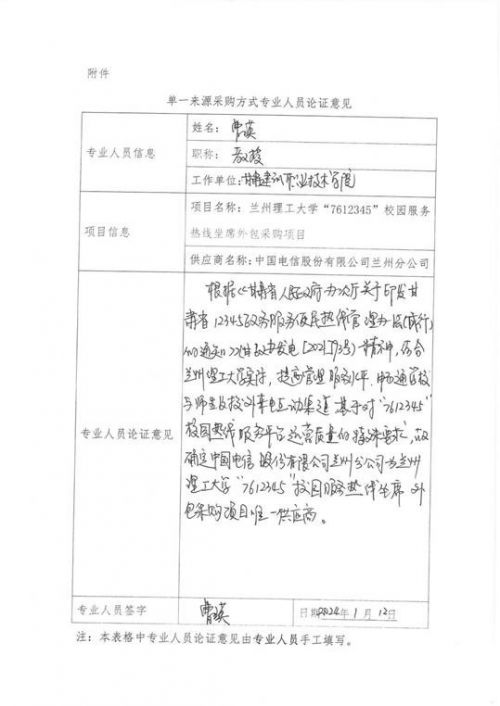 附件
单一来源采购方式专业人员论证意见
专业人员信息
姓名：曹英
职称：教授
工作单位：甘肃建筑职业技术学院
项目信息
项目名称：兰州理工大学“7612345”校园服务
热线坐席外包采购项目
供应商名称：中国电信股份有限公司兰州分公司
专业人员论证意见
根据《甘肃省人民政府办公厅关于印发甘
肃省12345政务服务便民热线管理办法(试行)
的通知》(甘政办发电〔2021〕93号)精神，符合
兰州理工大学实际，提高管理服务水平，畅通学校
与师生及校外来电互动渠道，基于对“7612345”
校园热线服务平台运营质量的特殊要求，故
确定中国电信股份有限公司兰州分公司为兰州
理工大学“7612345”校园服务热线坐席外
包采购项目唯一供应商。
专业人员签字
曹英
日期2024年1月12日
注：本表格中专业人员论证意见由专业人员手工填写。